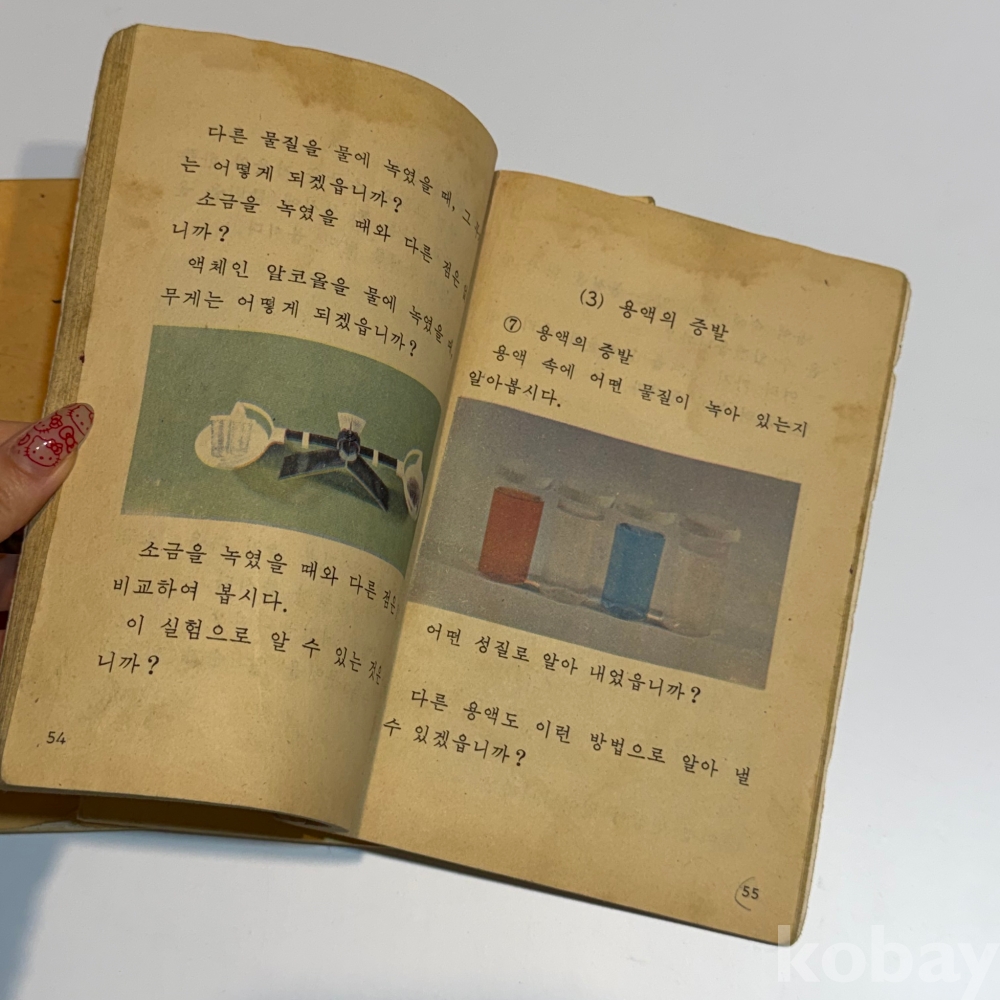 다른 물질을 물에 녹였을 때, 그
는 어떻게 되겠읍니까?
소금을 녹였을 때와 다른 점은
니까?
액체인 알코올을 물에 녹였을
무게는 어떻게 되겠읍니까?
소금을 녹였을 때와 다른 점은
비교하여 봅시다.
이 실험으로 알 수 있는 것은
니까?
54
(3) 용액의 증발
⑦ 용액의 증발
용액 속에 어떤 물질이 녹아 있는지
알아봅시다.
어떤 성질로 알아 내었읍니까?
다른 용액도 이런 방법으로 알아 낼
수 있겠읍니까?
55
kobay